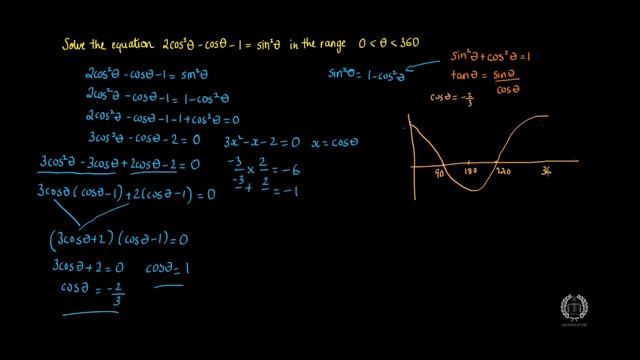 Solve the equation 2cos²θ - cosθ - 1 = sin²θ in the range 0 < θ < 360
2cos²θ - cosθ - 1 = sin²θ
2cos²θ - cosθ - 1 = 1 - cos²θ
2cos²θ - cosθ - 1 - 1 + cos²θ = 0
3cos²θ - cosθ - 2 = 0
3cos²θ - 3cosθ + 2cosθ - 2 = 0
3cosθ (cosθ - 1) + 2(cosθ - 1) = 0
(3cosθ + 2) (cosθ - 1) = 0
3cosθ + 2 = 0 cosθ = 1
cosθ = -2/3
3x² - x - 2 = 0 x = cosθ
-3 × 2 = -6
-3 + 2 = -1
sin²θ = 1 - cos²θ
sin²θ + cos²θ = 1
tanθ = sinθ/cosθ
cosθ = -2/3
90 180 270 36